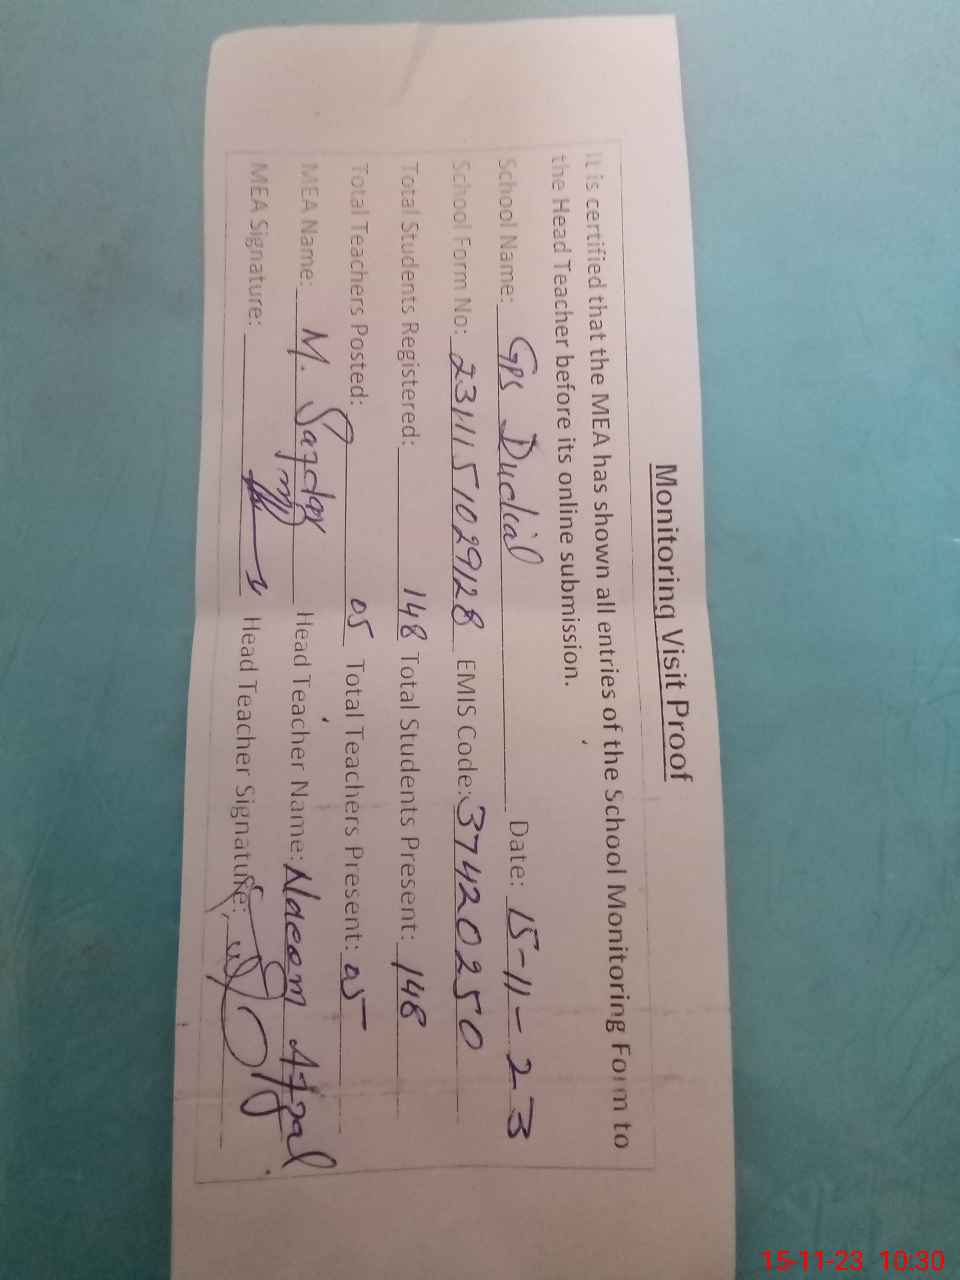 Monitoring Visit Proof
It is certified that the MEA has shown all entries of the School Monitoring Form to
the Head Teacher before its online submission.
School Name: GPS Duclial Date: 15-11-23
School Form No: 2311151029128 EMIS Code: 37420250
Total Students Registered: 148 Total Students Present: 148
Total Teachers Posted: 05 Total Teachers Present: 05
MEA Name: M. Safdar Head Teacher Name: Nadeem Afzal
MEA Signature: Head Teacher Signature:
15-11-23 10:30